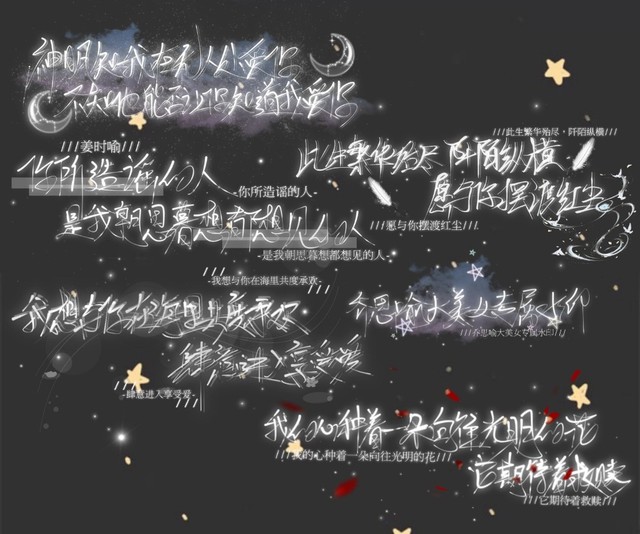 神明知我在别处爱你
不知他能否让你知道我爱你
///姜时喻///
///此生繁华殆尽·阡陌纵横///
此生繁华殆尽 阡陌纵横
你所造谣的人
-你所造谣的人-
愿与你摆渡红尘
///愿与你摆渡红尘///
是我朝思暮想都想见的人
-是我朝思暮想都想见的人
-我想与你在海里共度承欢-
我想与你在海里共度承欢
乔思喻大美女专属水印
///乔思喻大美女专属水印///
肆意进入享受爱
-肆意进入享受爱-
我的心种着一朵向往光明的花
///我的心种着一朵向往光明的花///
它期待着救赎
///它期待着救赎///